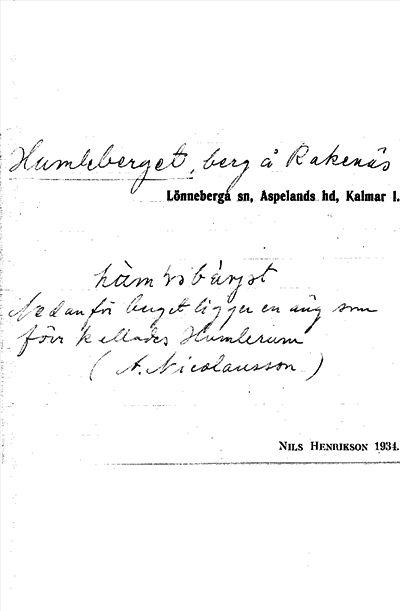 Humleberget, berg å Rakenäs
Lönneberga sn, Aspelands hd, Kalmar l.
Nedanför berget ligger en äng som
förr kallades Humlerum
(A. Nicolausson)
NILS HENRIKSON 1934.